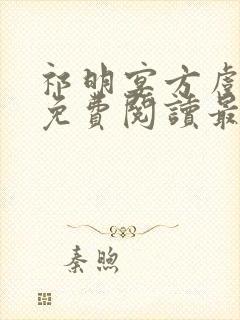 祁明宴方虞
免費閱讀最
秦煦